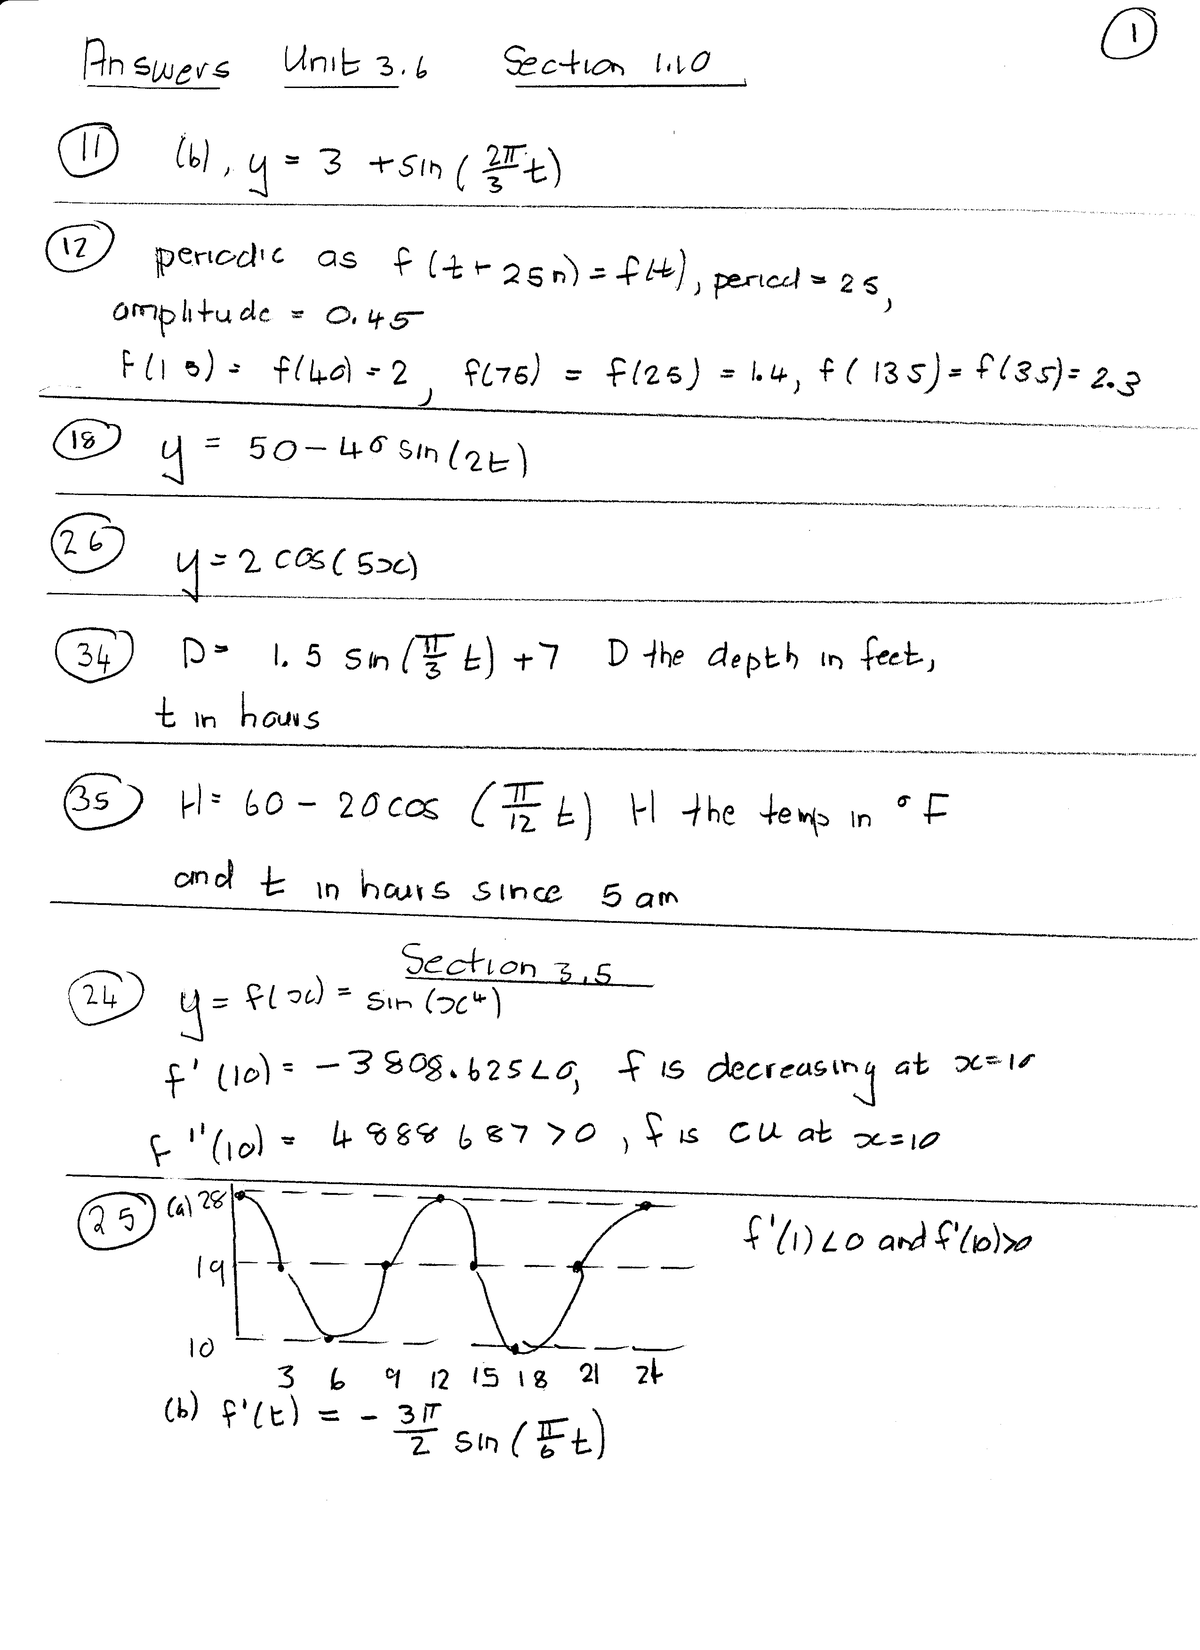 1
Answers Unit 3.6 Section 1.10
11 (b), y = 3 + sin ( 2π/3 t)
12 periodic as f(t + 25n) = f(t), period = 25,
amplitude = 0.45
f(15) = f(40) = 2, f(75) = f(25) = 1.4, f(135) = f(35) = 2.3
18 y = 50 - 40 sin(2t)
26 y = 2 cos(5x)
34 D = 1.5 sin(π/3 t) + 7 D the depth in feet,
t in hours
35 H = 60 - 20 cos (π/12 t) H the temp in °F
and t in hours since 5 am
Section 3.5
24 y = f(x) = sin(x⁴)
f'(10) = -3808.625 < 0, f is decreasing at x=10
f''(10) = 4888687 > 0, f is CU at x=10
25 (a) 28
f'(1) < 0 and f'(10) > 0
19
10
3 6 9 12 15 18 21 24
(b) f'(t) = - 3π/2 sin(π/6 t)